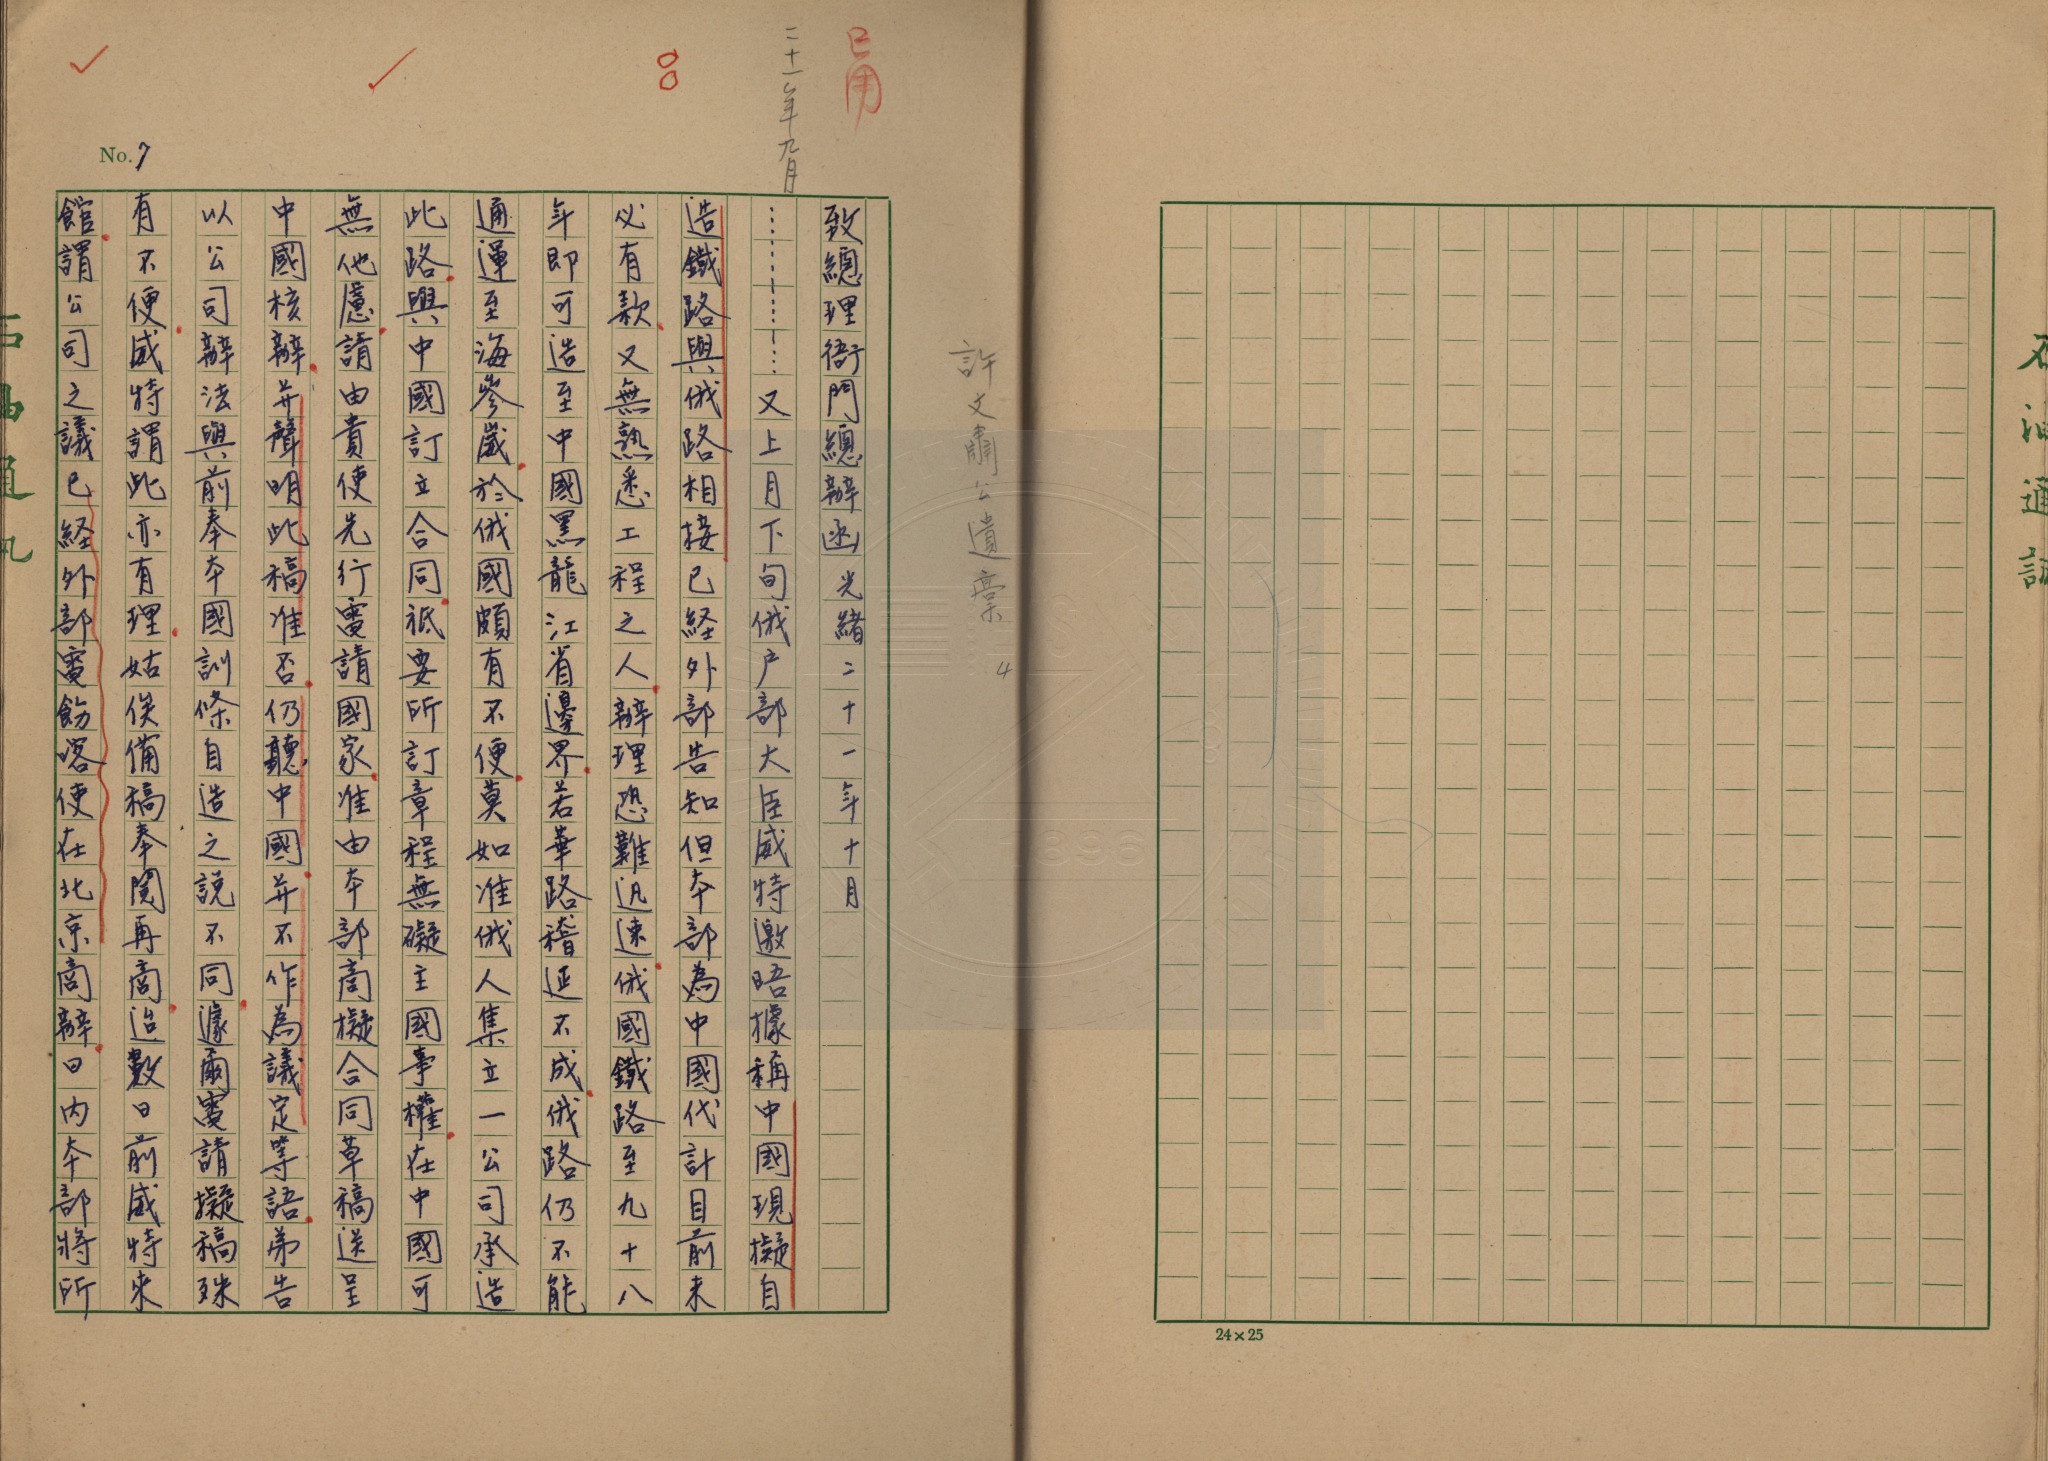 石油通訊
24×25
許文肅公遺稾 4
已用
二十一年九月
No. 7
致總理衙門總辦函 光緒二十一年十月
……………又上月下旬俄户部大臣威特邀晤據稱中國現擬自
造鐵路與俄路相接已経外部告知但本部為中國代計目前未
必有款又無熟悉工程之人辦理恐難迅速俄國鐵路至九十八
年即可造至中國黑龍江省邊界若華路稽延不成俄路仍不能
通運至海參崴於俄國頗有不便莫如准俄人集立一公司承造
此路與中國訂立合同祗要所訂章程無礙主國事權在中國可
無他慮請由貴使先行電請國家准由本部商擬合同草稿送呈
中國核辦并聲明此稿准否仍聽中國并不作為議定等語弟告
以公司辦法與前奉本國訓條自造之說不同遽爾電請擬稿殊
有不便威特謂此亦有理姑俟備稿奉閱再商迨數日前威特來
館謂公司之議已経外部電飭喀使在北京商辦日内本部將所